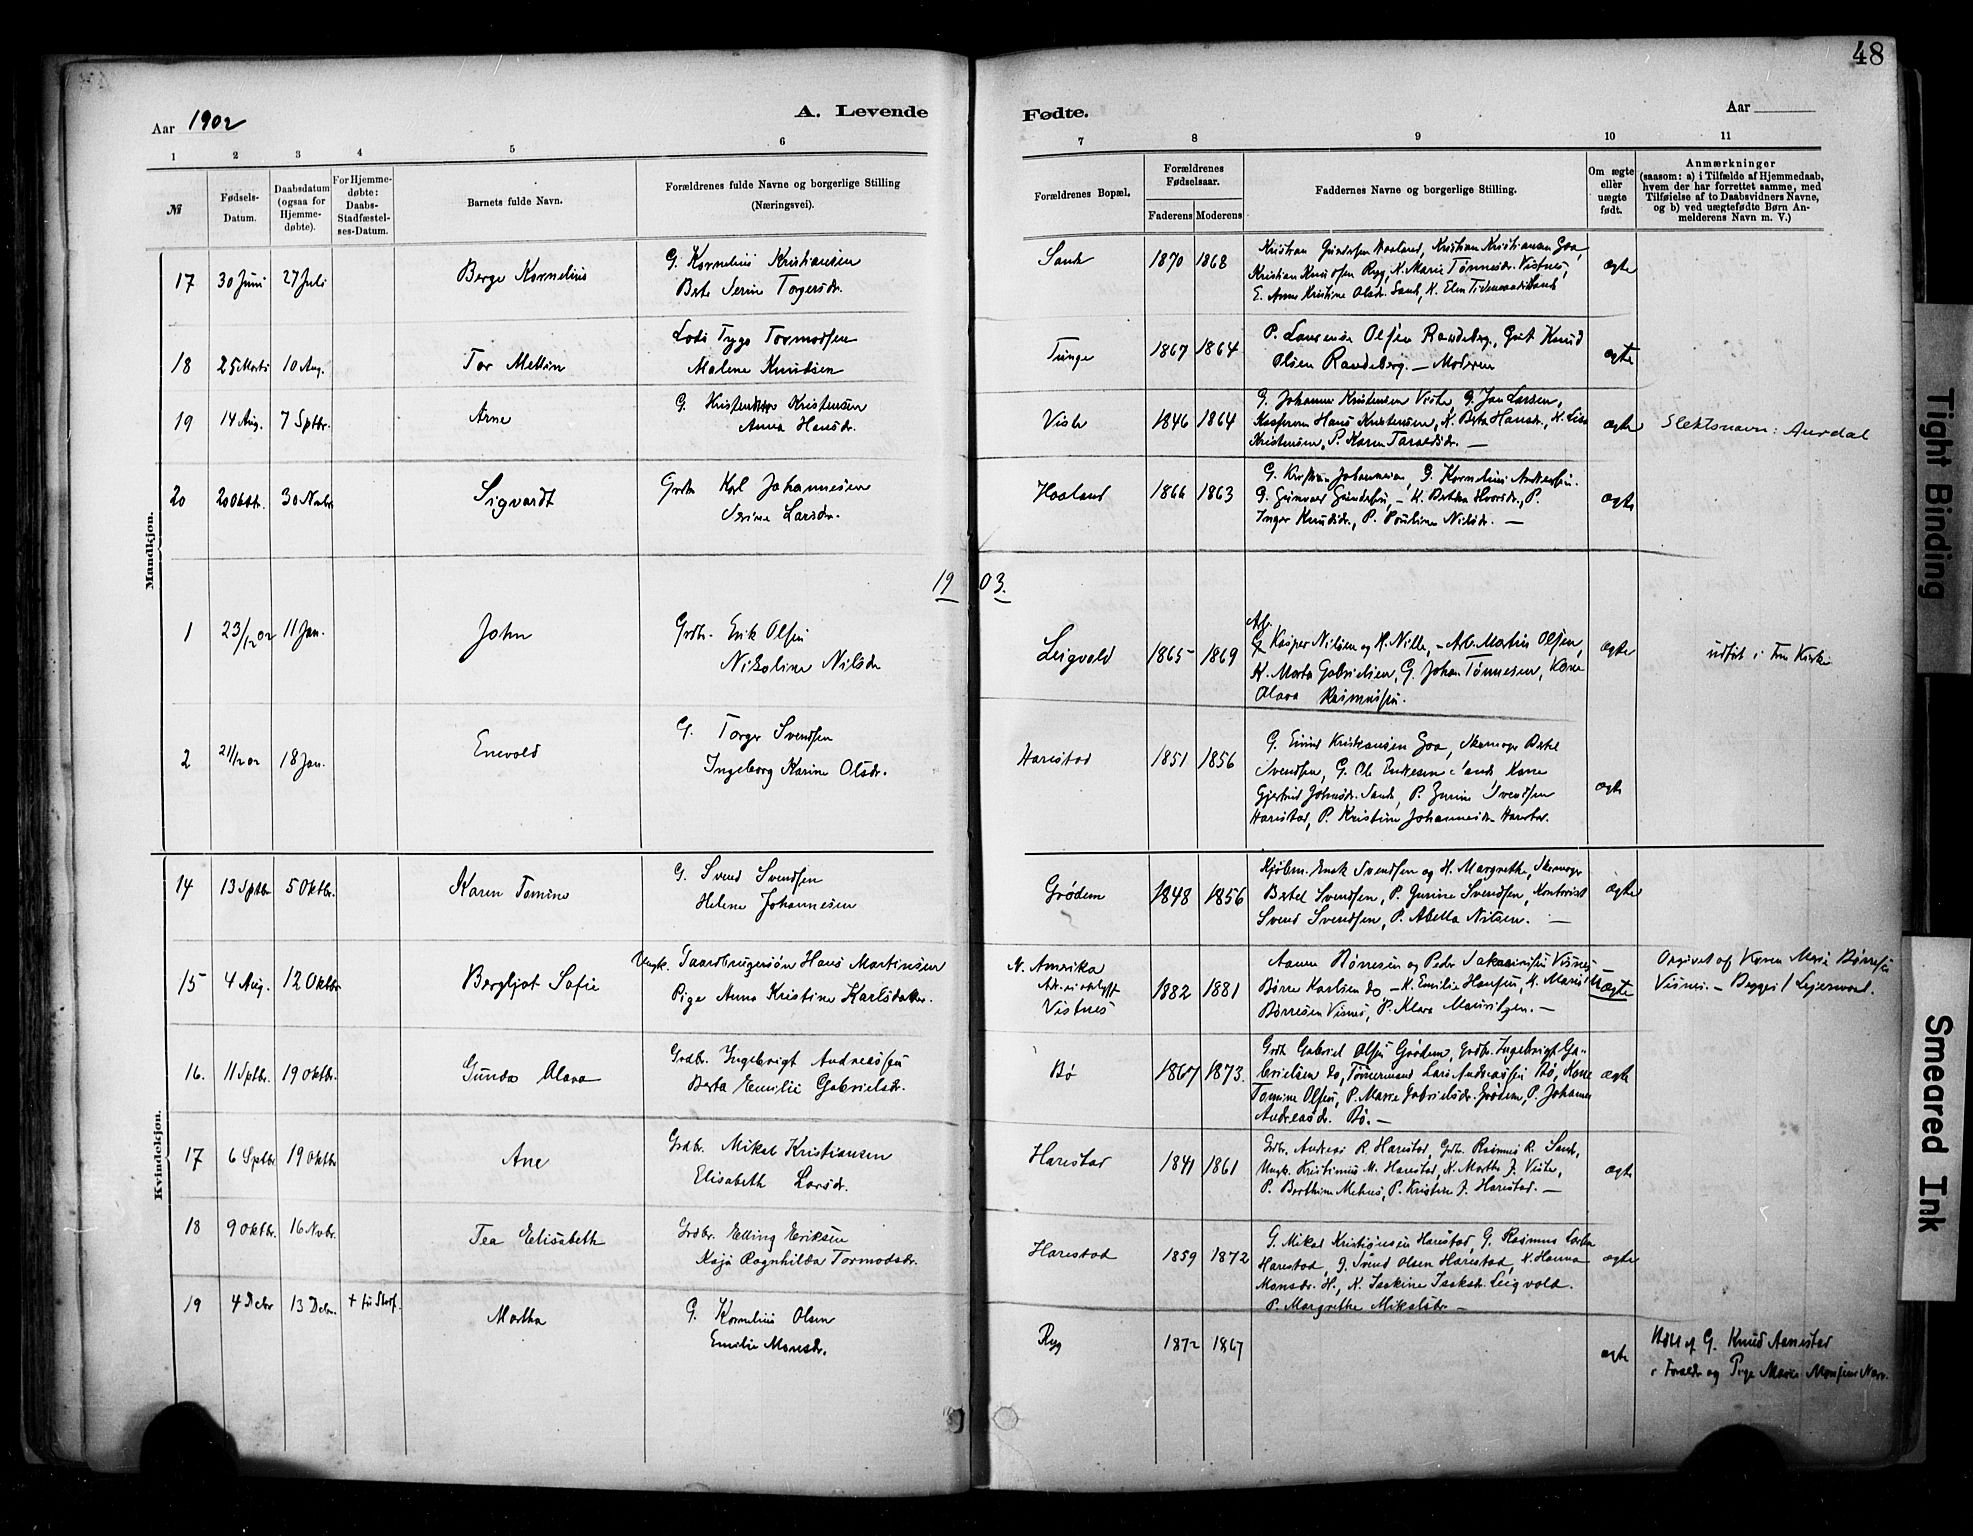 48
Aar 1902
A. Levende
Fødte.
Aar
1 2 3 4 5 6 7 8 9 10 11
№
Fødsels-
Datum.
Daabsdatum
(ogsaa for
Hjemme-
døbte).
For Hjemme-
døbte:
Daabs-
Stadfæstel-
ses-Datum.
Barnets fulde Navn.
Forældrenes fulde Navne og borgerlige Stilling
(Næringsvei).
Forældrenes Bopæl.
Forældrenes
Fødselsaar.
Faderens Moderens
Faddernes Navne og borgerlige Stilling.
Om ægte
eller
uægte
født.
Anmærkninger
(saasom: a) i Tilfælde af Hjemmedaab,
hvem der har forrettet samme, med
Tilføielse af to Daabsvidners Navne,
og b) ved uægtefødte Børn An-
melderens Navn m. V.)
Mandkjøn.
17 30 Juni 27 Juli Berge Kornelius
G. Kornelius Kristiansen
Berte Serine Torgersdr.
Sande 1870 1868
Kristian Gundersen Haaland, Kristian Kristiansen Goa,
Kristian Knudsen Ryg, K. Marie Tønnesdr. Vistnes,
E. Anne Kristine Olsdr. Sande, K. Elen
ægte
18 25 Marts 10 Aug. Tor Melton
Lods Trygo Tormodsen
Malene Knudsen
Tunge 1867 1864
P. Laurense Olsen Randeberg, Gut Knud
Olsen Randeberg. — Moderen
ægte
19 14 Aug. 7 Sptbr. Arne
G. Kristensen
Anna Hansdr.
Viste 1846 1864
G. Johannes Kristensen Viste, G. Jan Larsen,
Hans Kristensen, K. Berta Hansdr., K. Lisa
Kristensen, P. Karen Taraldsdr. —
ægte
Slektsnavn: Aurdal
20 20 Oktbr. 30 Novbr Sigvardt
Grdbr Karl Johannesen
Serine Larsdr.
Haaland 1866 1863
G. Kristian Johannesen, G. Kornelius Andersen.
G. Gunvar Gundersen, — K. Bertha Hansdr., P.
Inger Knudsdr., P. Pauline Nilsdr. —
ægte
1903.
1 23/12 02 11 Jan. John
Grdbr. Erik Olsen
Nikoline Nilsdr
Leigvold 1865 1869
Arb.
G. Kasper Nilsen og H. Nille, — Arb. Martin Olsen,
K. Marta Gabrielsen, G. Johan Tønnesen, Kone
Olava Rasmussen.
ægte
udført i Fru Kirke
2 21/12 02 18 Jan. Enevold
G. Torger Svendsen
Ingeborg Karine Olsdr.
Harestad 1851 1856
G. Eivind Kristiansen Goa, Skomager Bertel
Svendsen, G. Ole Eriksen Sande, Kone
Gjertrud Johnsdr. Sande, P. Gurine Svendsen
Harestad, P. Kristine Johannesdr. Harestad.
ægte
Kvindekjøn.
14 13 Sptbr 5 Oktbr. Karen Tomine
G. Svend Svendsen
Helene Johannesen
Grødem 1848 1856
Kjøbm. Enok Svendsen og H. Margrethe, Skomager
Bertel Svendsen, P. Gurine Svendsen, Kontorist
Svend Svendsen, P. Abella Nilsen. —
ægte
15 4 Aug. 12 Oktbr Bergljot Sofie
Ungk. Gaardbrugersøn Hans Martinsen
Pige Anna Kristine Karlsdatter.
N. Amerika
Vistnes
1882 1881
Aanen Børresen og Peder Sakariasen Visnes
Børre Karlsen do — K. Emilie Hansen, K. Marie
Børresen Visnes, P. Klara Mauritzen. —
Uægte
Opgivet af Karen Marie Børresen
Visnes. — Begges 1 Leiermaal.
16. 11 Sptbr. 19 Oktbr. Gunda Olava
Grdbr. Ingebrigt Andreassen
Berta Emilie Gabrielsdr.
Bø 1867 1873.
Grdb Gabriel Olsen Grødem, Grdbr. Ingebrigt Ga-
brielsen do, Tømmermand Lars Andreassen Bø, Kone
Tomine Olsen, P. Marie Gabrielsdr. Grødem, P. Johanne
Andreasdr. Bø. —
ægte
17 6 Sptbr 19 Oktbr Ane
Grdbr. Mikal Kristiansen
Elisabeth Larsdr.
Harestad 1841 1861
Grdbr. Andreas R. Harestad, Grdbr. Rasmus R. Sande,
Ungk. Kristinius M. Harestad, K. Marthe J. Viste,
P. Berthine Meknes, P. Kristine J. Harestad. —
ægte
18 9 Oktbr. 16 Nvbr. Tea Elisabeth
Grdbr. Elling Eriksen
Kaja Ragnhilda Tormodsdr.
Harestad 1859 1872
G. Mikal Kristiansen Harestad, G. Rasmus
Harestad, G. Svend Olsen Harestad, K. Hanna
Monsdr. H., K. Isakine Isaksdr. Leigvold.
P. Margrethe Mikalsdr —
ægte
19 4 Decbr 13 Decbr. + før Stadf. Martha
G. Kornelius Olsen
Emilie Monsdr.
Ryg 1872 1867
ægte
Hdøbt af G. Knud Aanestad
Forældr og Pige Marie Monsen
Tight Binding
Smeared Ink